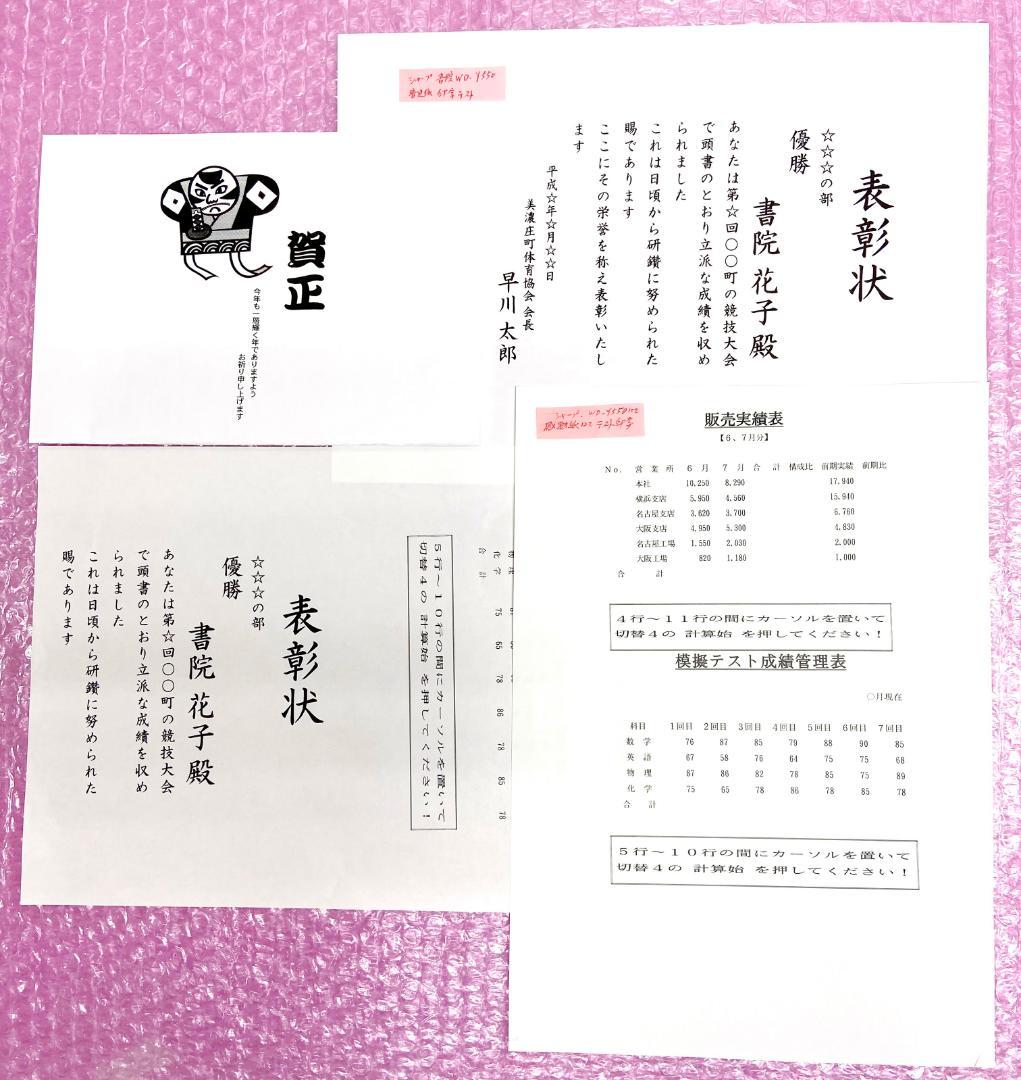 シャープ 書院 WD-Y550
普通紙 印字テスト
表彰状
☆☆☆の部
優勝
書院 花子殿
あなたは第☆回〇〇町の競技大会
で頭書のとおり立派な成績を収め
られました
これは日頃から研鑽に努められた
賜であります
ここにその栄誉を称え表彰いたし
ます
平成☆年☆月☆☆日
美濃庄町体育協会 会長
早川 太郎
賀正
今年も一層輝く年でありますよう
お祈り申し上げます
表彰状
☆☆☆の部
優勝
書院 花子殿
あなたは第☆回〇〇町の競技大会
で頭書のとおり立派な成績を収め
られました
これは日頃から研鑽に努められた
賜であります
5行~10行の間にカーソルを置いて
切替4の 計算始 を押してください!
化 学 75 65 78 86 78 85 78
合 計
シャープ WD-Y550にて
感熱紙にて テスト印字
販売実績表
【6、7月分】
No. 営業所 6 月 7 月 合 計 構成比 前期実績 前期比
本社 10,250 8,290 17,940
横浜支店 5,950 4,560 15,940
名古屋支店 3,620 3,700 6,760
大阪支店 4,950 5,300 4,830
名古屋工場 1,550 2,030 2,000
大阪工場 820 1,180 1,000
合 計
4行~11行の間にカーソルを置いて
切替4の 計算始 を押してください!
模擬テスト成績管理表
〇月現在
科目 1回目 2回目 3回目 4回目 5回目 6回目 7回目
数 学 76 87 85 79 88 90 85
英 語 67 58 76 64 75 75 68
物 理 87 86 82 78 85 75 89
化 学 75 65 78 86 78 85 78
合 計
5行~10行の間にカーソルを置いて
切替4の 計算始 を押してください!